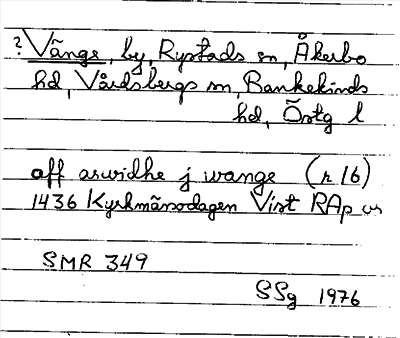 ? Vänge, by, Rystads sn, Åkerbo
hd, Vårdsbergs sn, Bankekinds
hd, Östg l
aff arwidhe j wange (r 16)
1436 Kyrkmässodagen Vist RAp or
SMR 349
SSg 1976